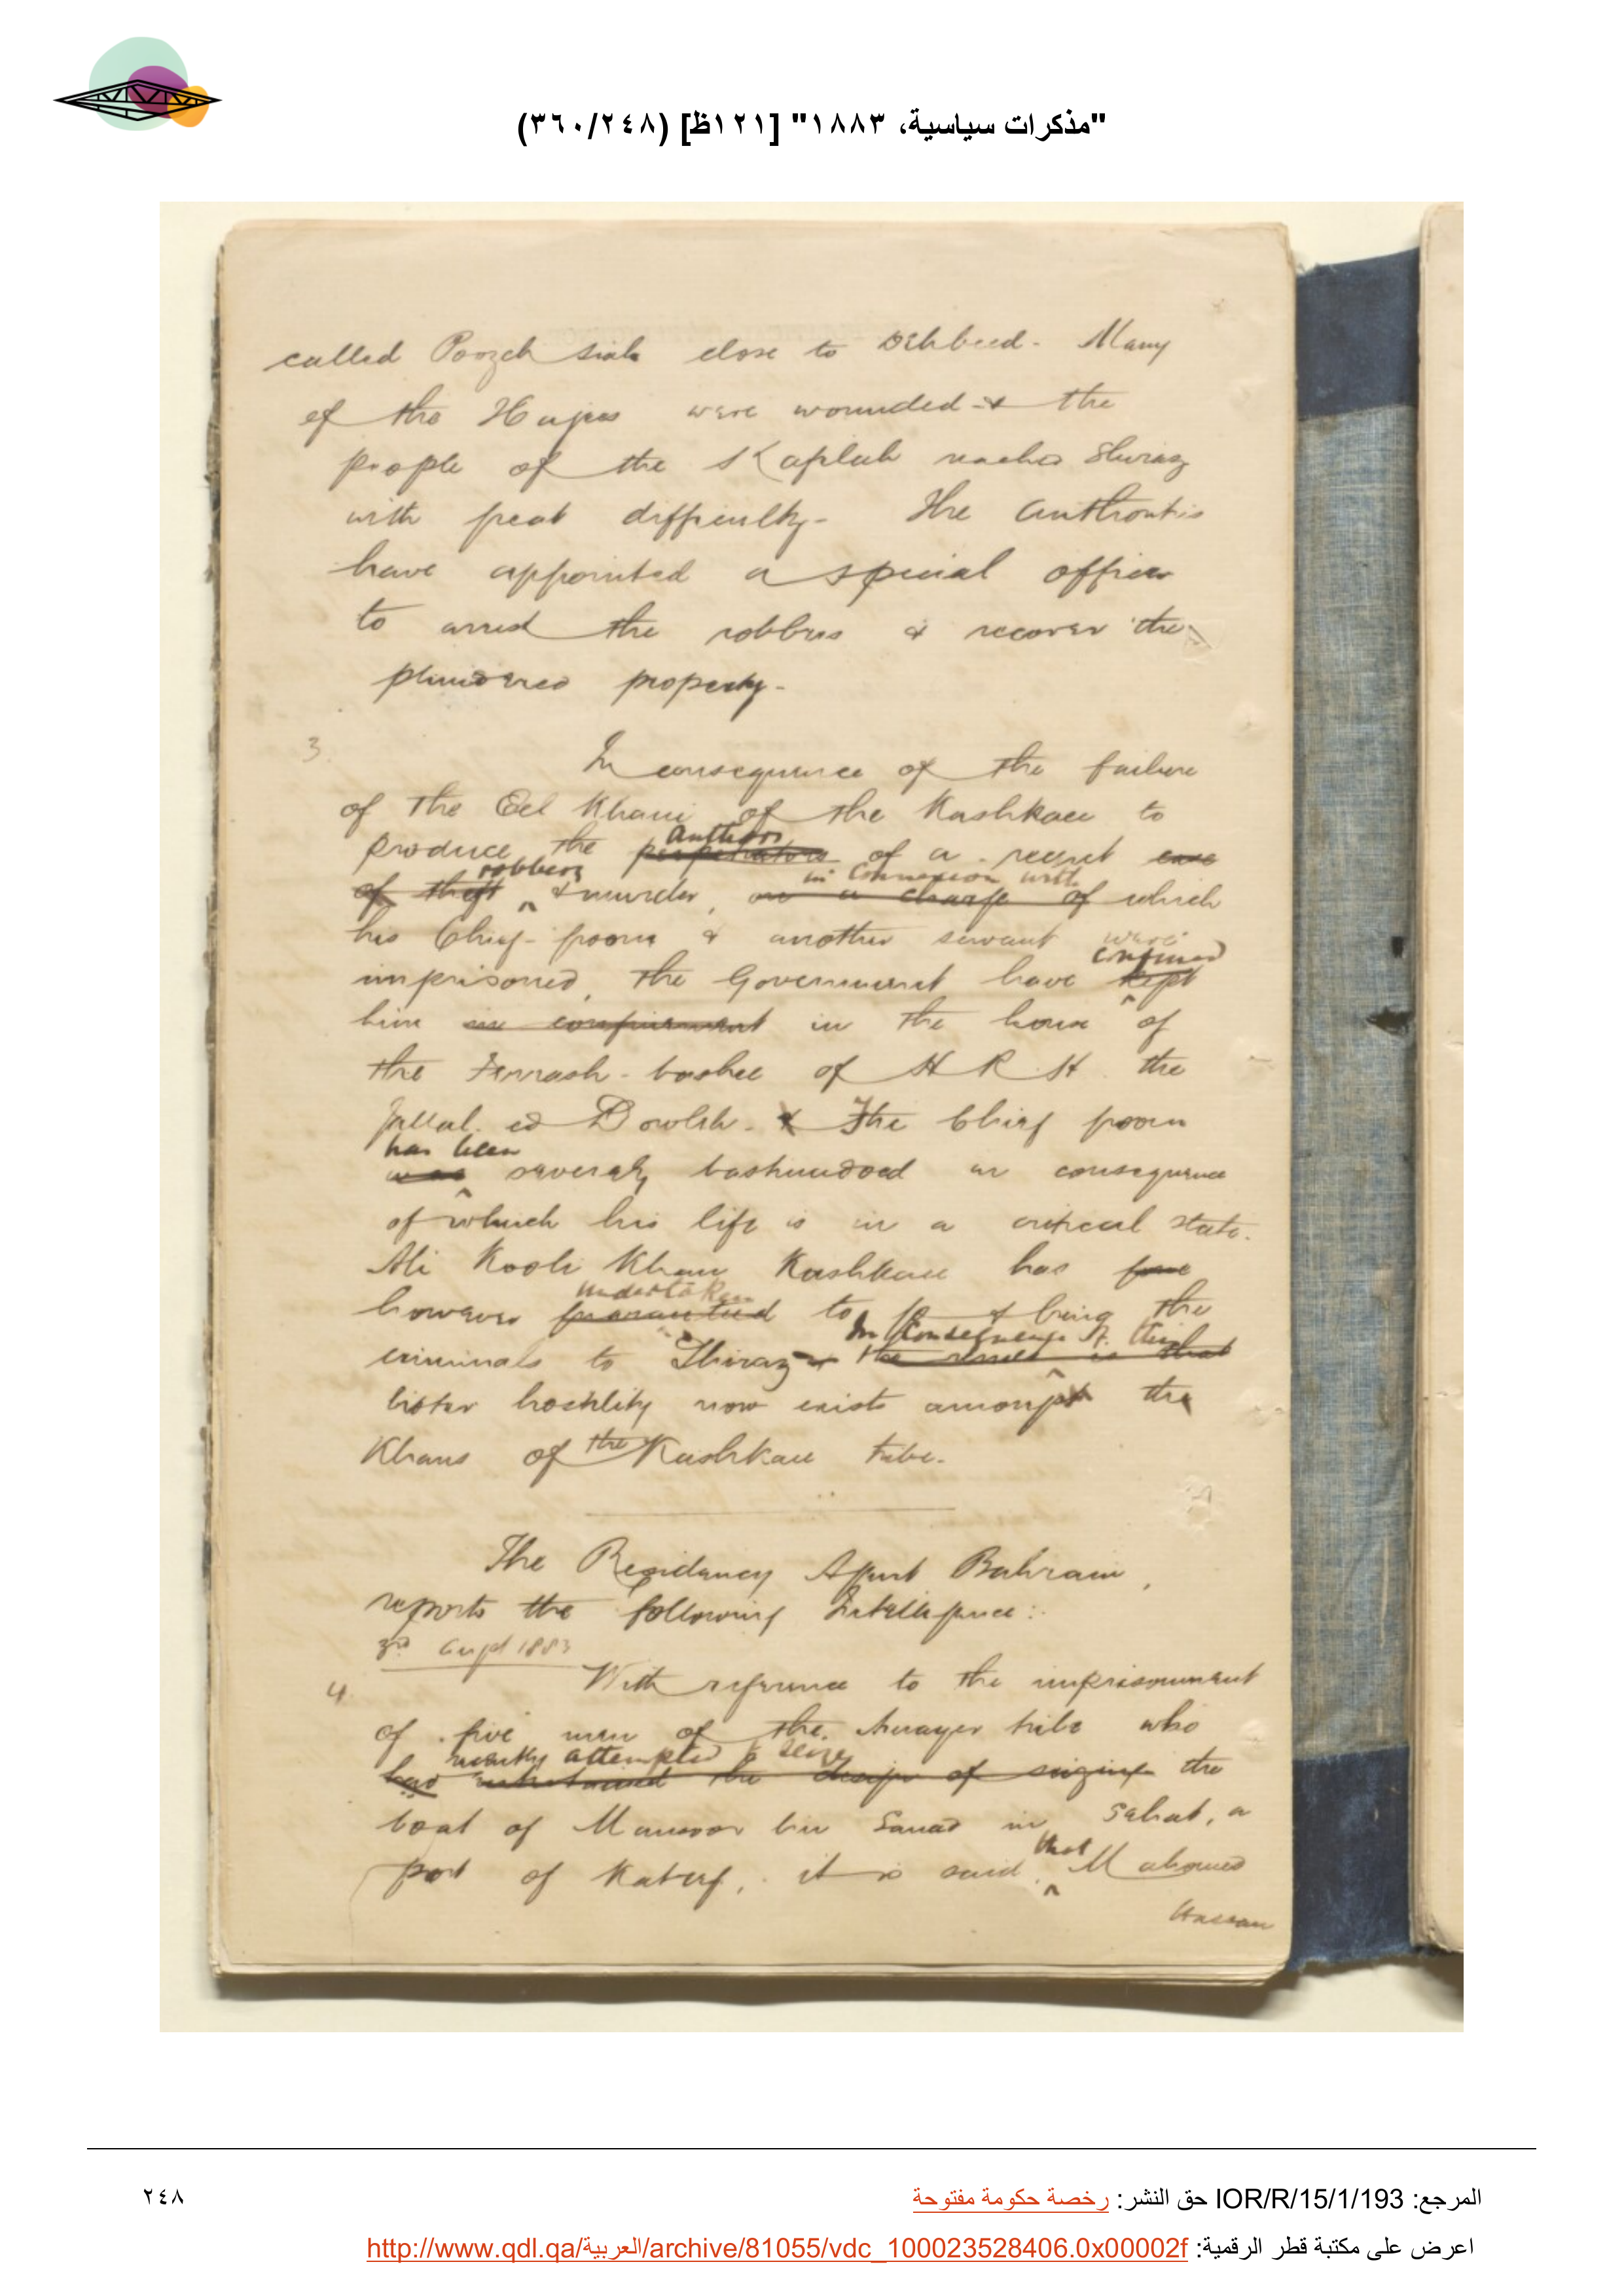 "مذكرات سياسية، ١٨٨٣" [١٢١ظ] (٣٦٠/٢٤٨)
called Poozeh siah close to Dehbeed - Many
of the Hajees were wounded - & the
people of the Kaflah reached Shiraz
with great difficulty - The Authorities
have appointed a special officer
to arrest the robbers & recover the
plundered property -
3. In consequence of the failure
of the Eel Khani of the Kashkaee to
Authors
produce the perpetrators of a recent case
robbery in connexion with
of theft & murder, on a charge of which
his Chief-groom & another servant were
confined
imprisoned, the Government have kept
him in confinement in the house of
the Ferrash-bashee of H R H the
Jallal ed Dowleh. & The Chief groom
has been
was severely bastinadoed in consequence
of which his life is in a critical state.
Ali Kooli Khan Kashkaee has gone
undertaken
however guaranteed to go & bring the
In consequence of this
criminals to Shiraz & the result is that
bitter hostility now exists amongst the
Khans of the Kashkaee tribe.
The Residency Agent Bahrain,
reports the following Intelligence:
3rd Augt 1883
4. With reference to the imprisonment
of five men of the Amayer tribe who
recently attempted to seize
had entertained the design of seizing the
boat of Mansoor bin Sanad in Sahat, a
that
port of Kateef, it is said Mahomed
Hassan
المرجع: IOR/R/15/1/193 حق النشر: رخصة حكومة مفتوحة
٢٤٨
اعرض على مكتبة قطر الرقمية: http://www.qdl.qa/العربية/archive/81055/vdc_100023528406.0x00002f